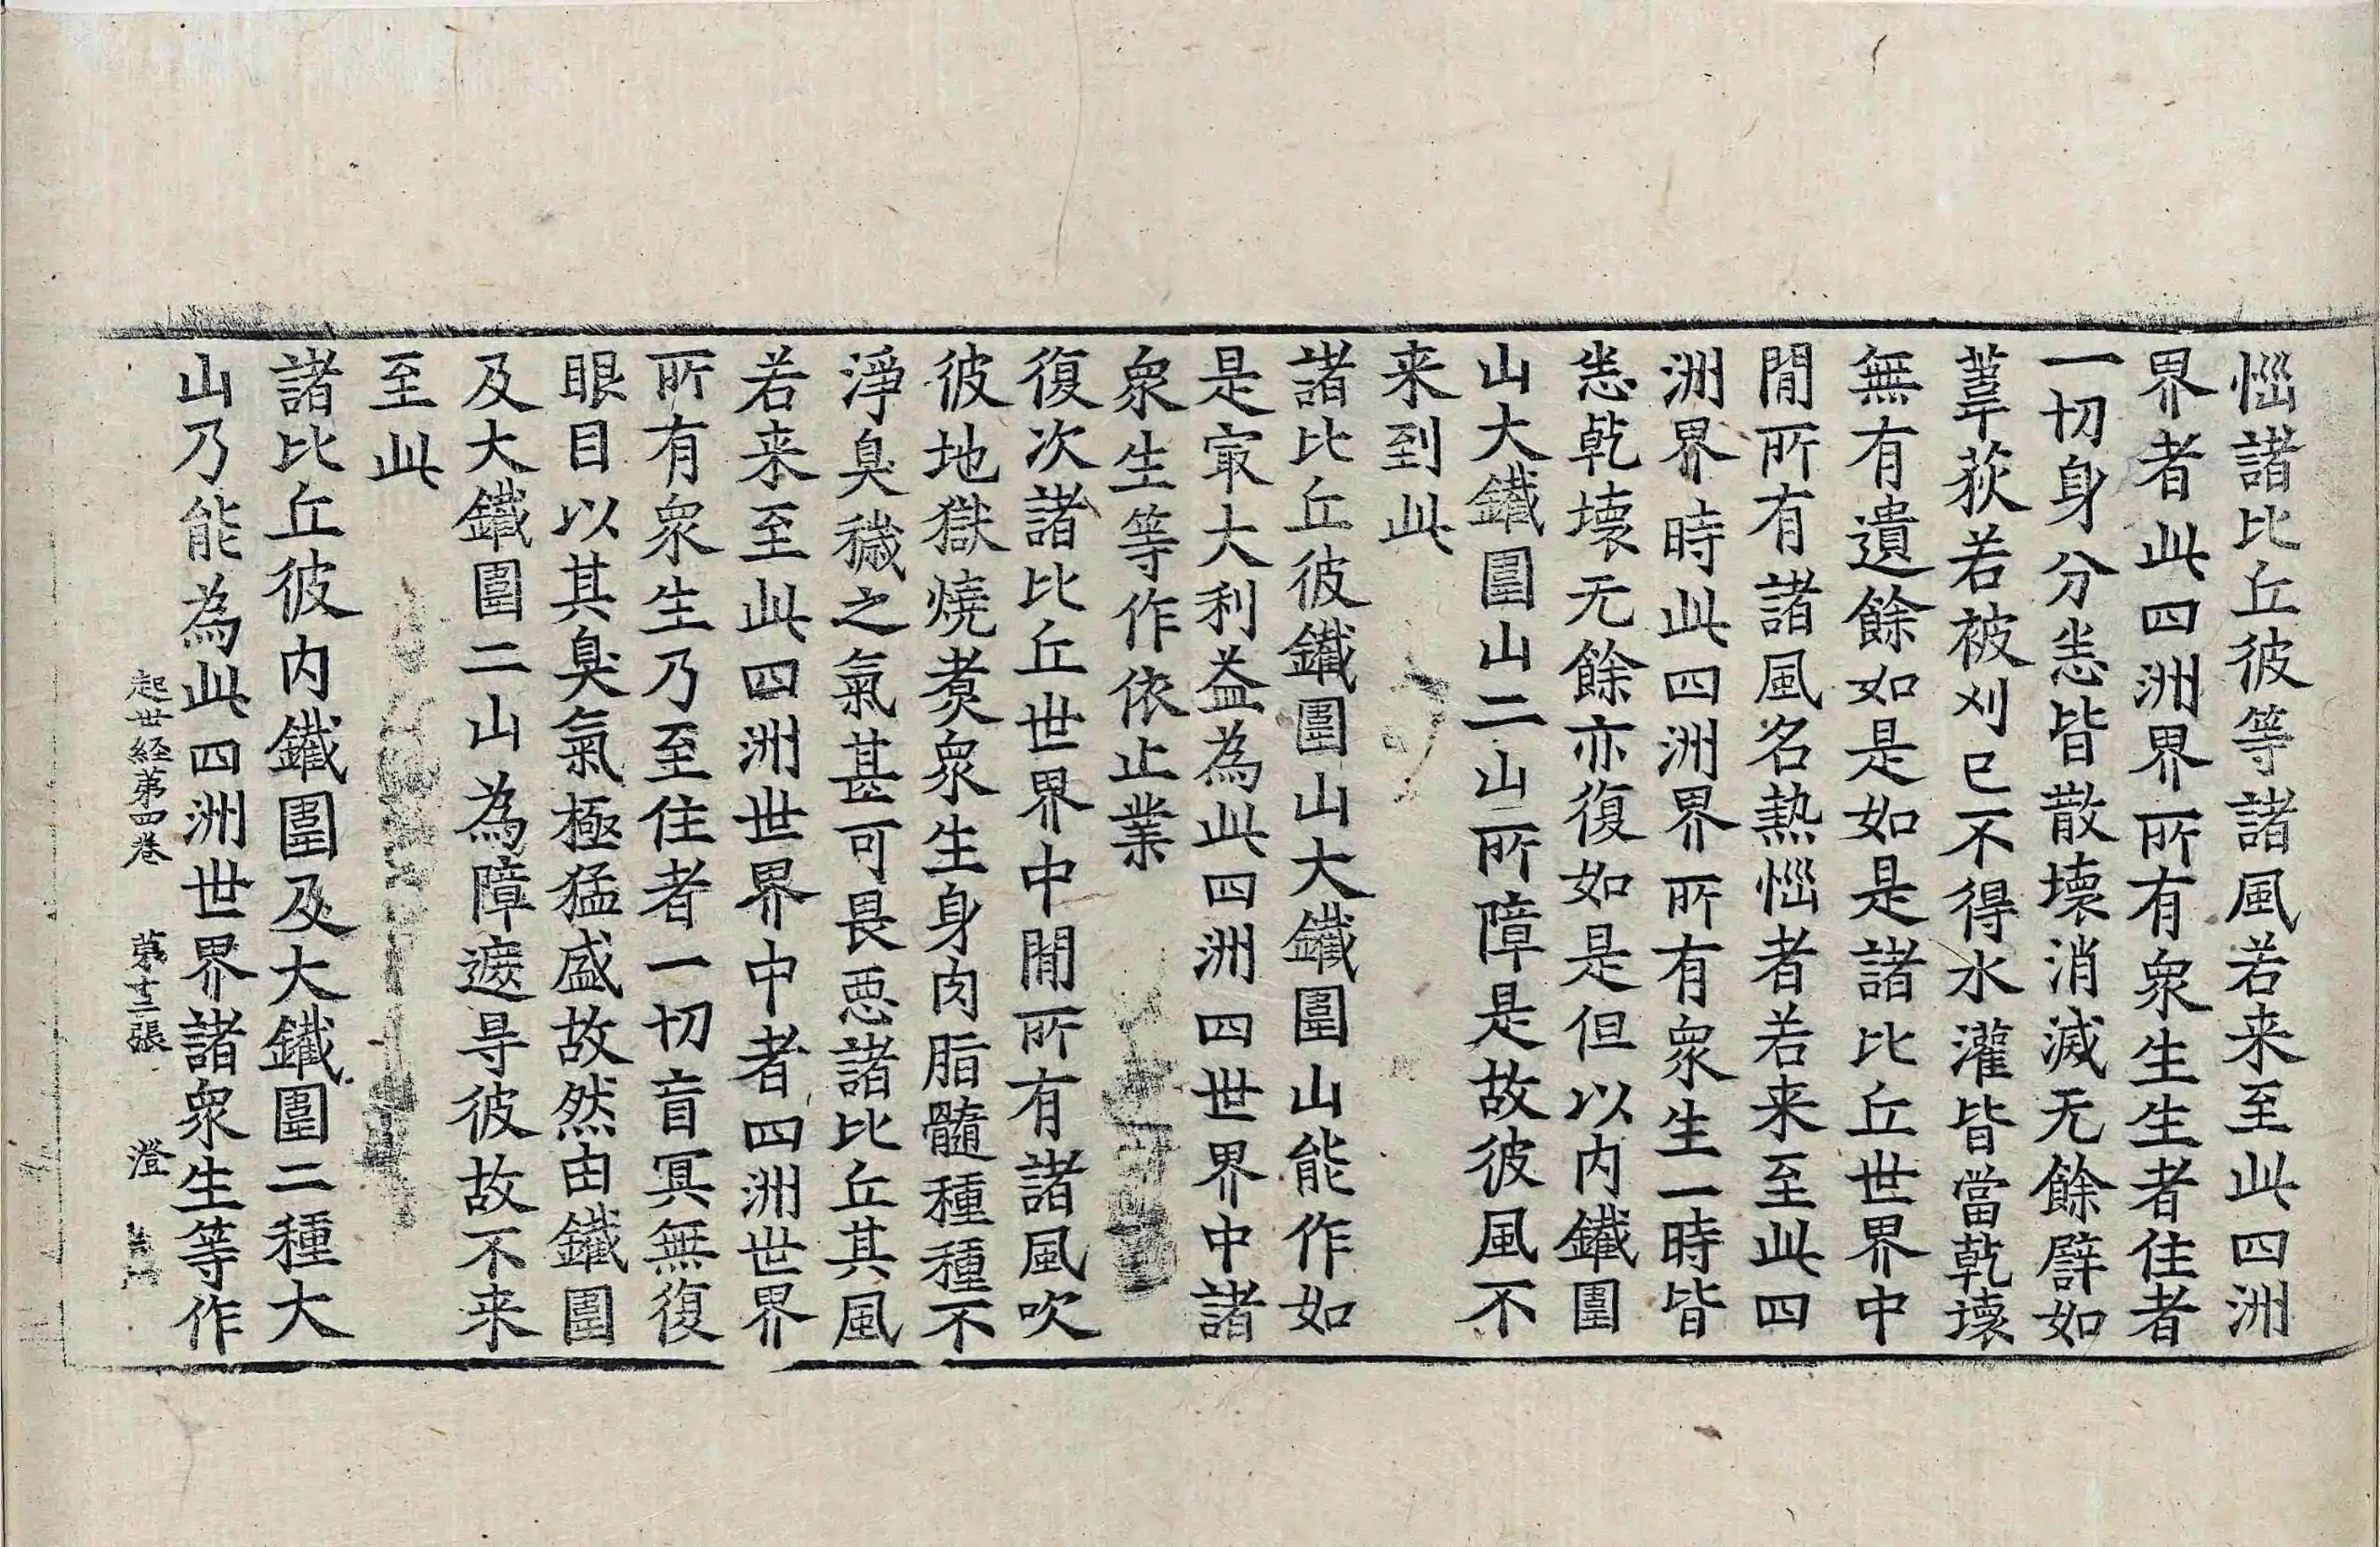 惱諸比丘彼等諸風若来至此四洲
界者此四洲界所有衆生生者住者
一切身分悉皆散壞消滅无餘譬如
葦荻若被刈已不得水灌皆當乾壞
無有遺餘如是如是諸比丘世界中
閒所有諸風名熱惱者若来至此四
洲界時此四洲界所有衆生一時皆
悉乾壞无餘亦復如是但以内鐵圍
山大鐵圍山二山所障是故彼風不
来到此
諸比丘彼鐵圍山大鐵圍山能作如
是㝡大利益為此四洲四世界中諸
衆生等作依止業
復次諸比丘世界中閒所有諸風吹
彼地獄燒煑衆生身肉脂髓種種不
淨臭穢之氣甚可畏惡諸比丘其風
若来至此四洲世界中者四洲世界
所有衆生乃至住者一切盲冥無復
眼目以其臭氣極猛盛故然由鐵圍
及大鐵圍二山為障遮㝵彼故不来
至此
諸比丘彼内鐵圍及大鐵圍二種大
山乃能為此四洲世界諸衆生等作
起世経苐四卷 苐十三張 澄